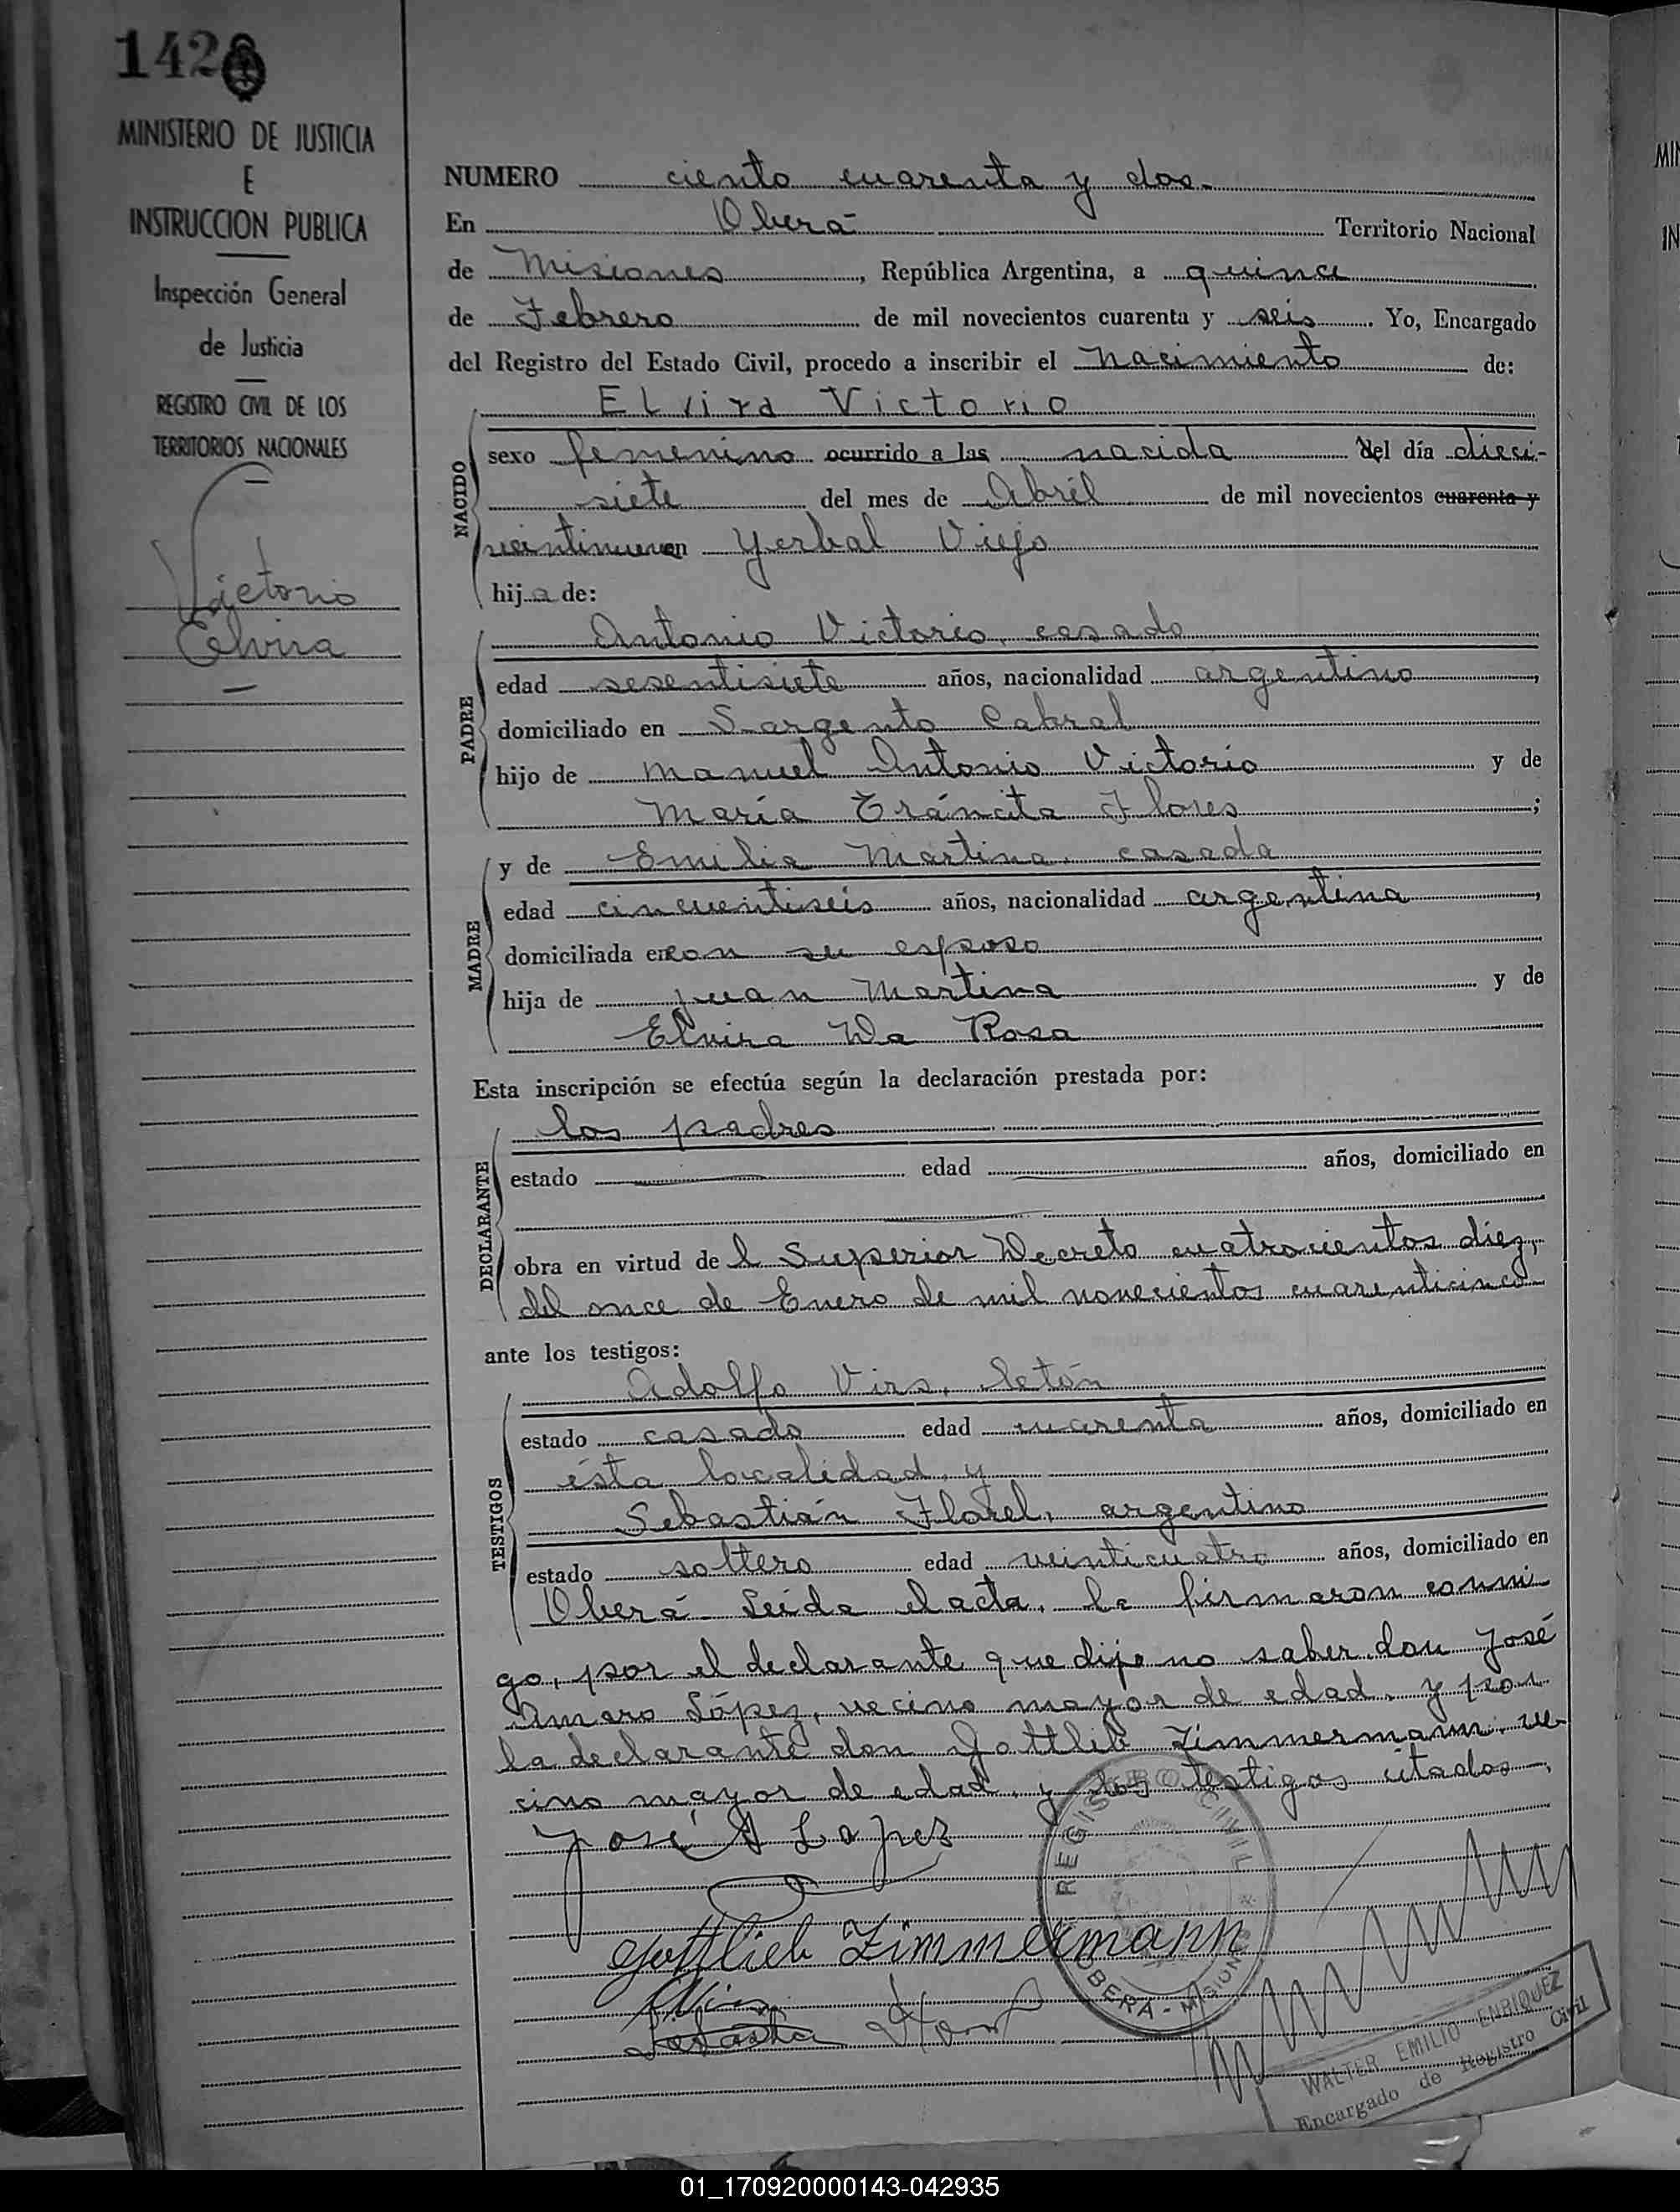 142
MINISTERIO DE JUSTICIA
E
INSTRUCCION PUBLICA
Inspección General
de Justicia
REGISTRO CIVIL DE LOS
TERRITORIOS NACIONALES
Victorio
Elvira
NUMERO ciento cuarenta y dos.
En Oberá Territorio Nacional
de Misiones, República Argentina, a quince
de Febrero de mil novecientos cuarenta y seis. Yo, Encargado
del Registro del Estado Civil, procedo a inscribir el nacimiento de:
Elvira Victorio
NACIDO
sexo femenino ocurrido a las nacida del día dieci-
siete del mes de Abril de mil novecientos cuarenta y
veintinueve en Yerbal Viejo
hija de:
PADRE
Antonio Victorio, casado
edad sesentisiete años, nacionalidad argentino,
domiciliado en Sargento Cabral
hijo de Manuel Antonio Victorio y de
María Tráncita Flores;
MADRE
y de Emilia Martina, casada
edad cincuentiseis años, nacionalidad argentina,
domiciliada en con su esposo
hija de Juan Martina y de
Elvira Da Rosa
Esta inscripción se efectúa según la declaración prestada por:
DECLARANTE
los padres
estado edad años, domiciliado en
obra en virtud del Superior Decreto cuatrocientos diez,
del once de Enero de mil novecientos cuarenticinco
ante los testigos:
TESTIGOS
Adolfo Virs, letón
estado casado edad cuarenta años, domiciliado en
ésta localidad, y
Sebastián Florel, argentino
estado soltero edad veinticuatro años, domiciliado en
Oberá. Leída el acta, la firmaron conmi
go, por el declarante que dijo no saber, don José
Amaro López, vecino mayor de edad, y por
la declarante don Gottlib Zimmermann, ve
cino mayor de edad, y los testigos citados,
José A Lopez
Gottlieb Zimmermann
REGISTRO CIVIL
OBERA - MISIONES
WALTER EMILIO ENRIQUEZ
Encargado de Registro Civil
01_170920000143-042935